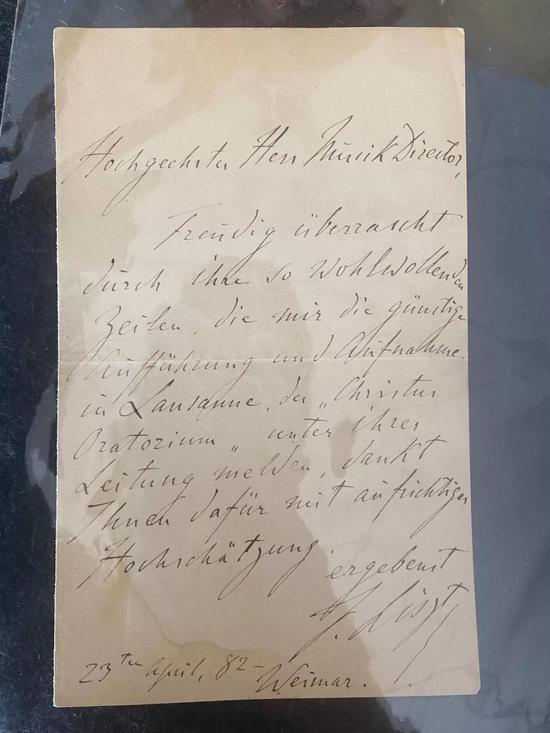 Hochgeehrter Herr Musik Director,
Freudig überrascht
durch ihre so wohlwollenden
Zeilen, die mir die günstige
Aufführung und Aufnahme
in Lausanne, des „Christus
Oratorium„ unter ihrer
Leitung melden, dankt
Ihnen dafür mit aufrichtiger
Hochschätzung
ergebenst
F. Liszt
23ten April, 82–
Weimar.